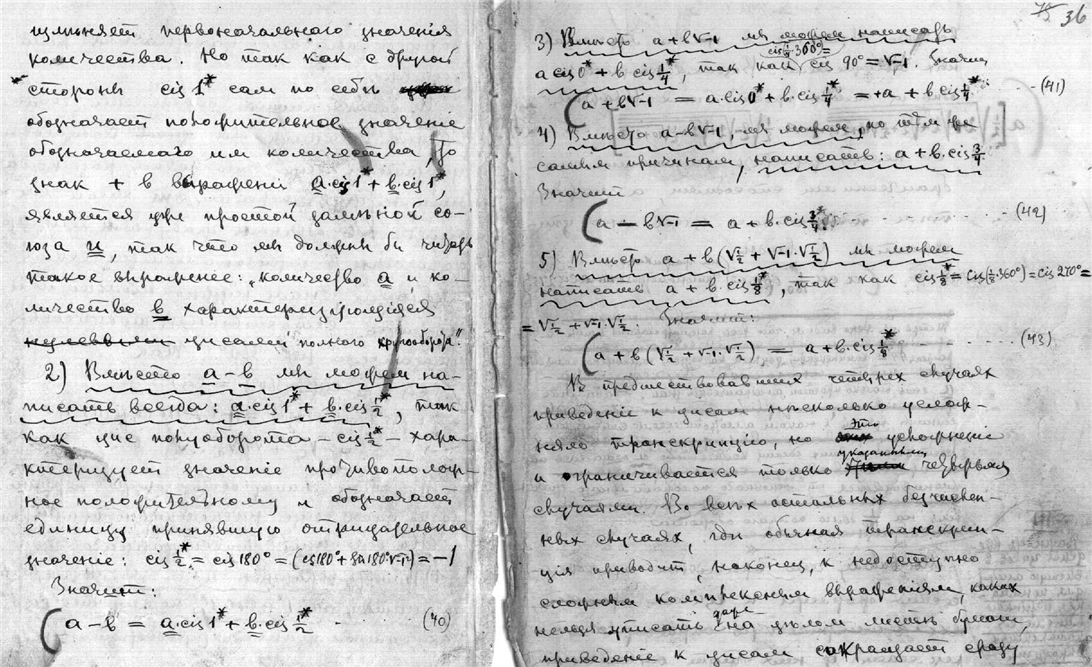 измѣняетъ первоначальнаго значенія
количества. Но такъ какъ съ другой
стороны cis 1* самъ по себѣ
обозначаетъ положительное значеніе
обозначаемаго имъ количества, то
знакъ + въ выраженіи a.cis 1* + b.cis 1*,
является уже простой замѣной со-
юза и, такъ что мы должны бы читать
такое выраженіе: „количество a и ко-
личество b характеризующійся
цисомъ полнаго кругооборота."
2) Вмѣсто a - b мы можемъ на-
писать всегда: a.cis 1* + b.cis 1/2*, такъ
какъ цис полуоборота - cis 1/2* - хара-
ктеризуетъ значеніе противополож-
ное положительному и обозначаетъ
единицу принявшую отрицательное
значеніе: cis 1/2* = cis 180° = (cs 180° + sn 180° √-1) = -1
Значитъ:
a - b = a.cis 1* + b.cis 1/2* (40)
36
3) Вмѣсто a + b√-1 мы можемъ написать
cis 1/4.360° =
a cis 0* + b cis 1/4*, такъ какъ cis 90° = √-1. Значитъ
a + b√-1 = a.cis 0* + b.cis 1/4* = +a + b.cis 1/4* (41)
4) Вмѣсто a - b√-1, мы можемъ, по тѣмъ же
самымъ причинамъ, написать: a + b.cis 3/4*
Значитъ
a - b√-1 = a + b.cis 3/4* (42)
5) Вмѣсто a + b(√1/2 + √-1.√1/2) мы можемъ
написать a + b.cis 1/8*, такъ какъ cis 1/8* = cis(1/8.360°) = cis 270° =
= √1/2 + √-1.√1/2. Значитъ:
a + b(√1/2 + √-1.√1/2) = a + b.cis 1/8* (43)
Въ предшествовавшихъ четырехъ случаяхъ
приведеніе къ цисам нѣсколько услож-
няло транскрипцію, но это усложненіе
указанными
и ограничивается только четырьмя
случаями. Во всѣхъ остальныхъ безчислен-
ныхъ случаяхъ, гдѣ обычная транскрип-
ція приводитъ, наконецъ, къ недоступно
сложнымъ комплекснымъ выраженіямъ, какихъ
даже
нельзя уписать на цѣломъ листѣ бумаги,
приведеніе къ цисам сокращаетъ сразу